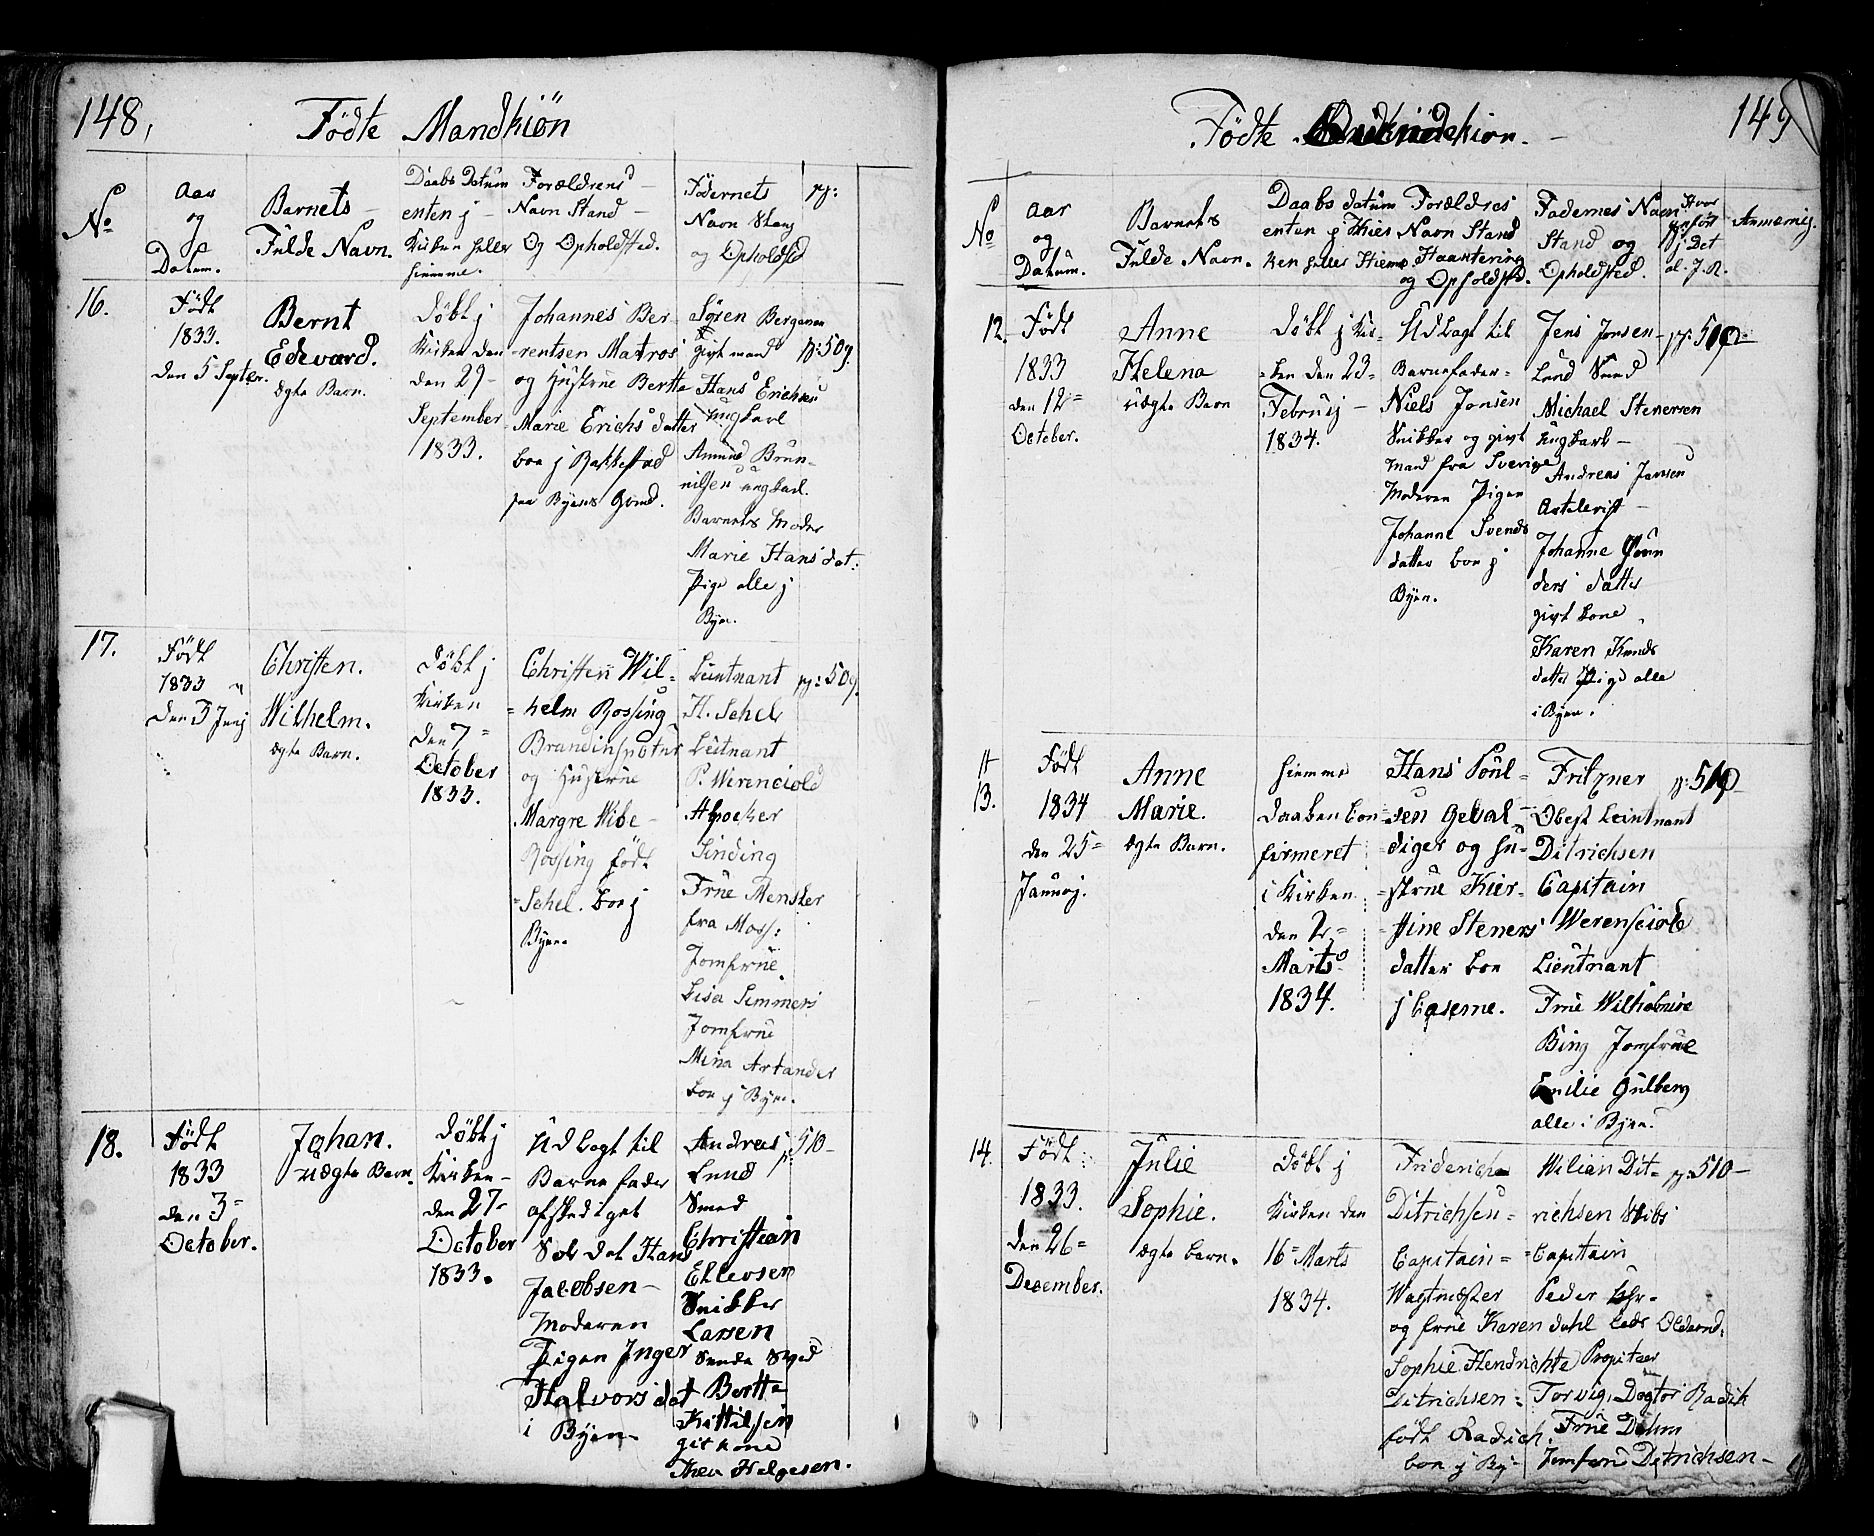 148,
Födte Mandkiön
No
Aar
og
Datum.
Barnets
Fulde Navn.
Daabs Datum
enten j
Kirken heller
hiemme.
Forældrens
Navn Stand
Og Opholdsted.
Födernets
Navn Stang
og Opholdsd
pg:
16.
Födt
1833.
den 5 Septer.
Bernt
Edevard.
Ægte Barn.
Döbt j
Kirken den
den 29-
September
1833.
Johannes Ber
rentsen Matros
og Hustrue Berthe
Marie Erichs datter
boe j Bakkestad
paa Byens Grund.
Sören Bergesen
givt mand
Hans Erichsen
ungkarl
Amund Brun-
nilsen ungkarl.
Barnets Moder
Marie Hans dat:
Pige alle j
Byen.
pg:509.
17.
Födt
1833
den 3 Junj
Christen.
Wilhelm.
ægte Barn.
Döbt j
Kirken
den 7=
October
1833.
Christen Wil=
helm Rossing
Brandinspecteur
og Hustrue
Margre Wibe
Rossing födt
Schel. boe j
Byen
Lieutnant
H. Schel
Leutnant
P. Werenciold
Apoeker
Sinding
Frue Mensker
fra Moss:
Jomfrue.
Lisa Simmers
Jomfrue
Mina Artander
boe j Byen.
pg:509.
18.
Födt
1833
den 3-
October.
Johan.
uægte Barn.
Döbt j
Kirken-
den 27-
October
1833.
Udlagt til
Barnefader
afskediget
Soldat Hans
Jacobsen-
Moderen
Pigen Inger
Halvors dat
i Byen
Andreas
Lund
Smed
Christian
Ellevsen
Snikker
Larsen
Berthe
Kittilsen
gift kone
Thea Helgesen.
p: 510-
149
Födte Qvindekiön.
No
Aar
og
Datum.
Barnets
Fulde Navn.
Daabs datum
enten j Kier
ken heller Hieme
Forældres
Navn Stand
Haantering
og Opholdsted.
Fadernes Navn
Stand og
Opholdsted.
Hvor
anfört
j Det
al. J. R.
Anmærng.
12.
Födt
1833
den 12=
October.
Anne
Helena
uægte Barn
Döbt j Kir-
ken den 23-
Februj-
1834.
Udlagt til
Barnefader=
Niels Jonsen
Snikker og givt
Mand fra Sverige
Moderen Pigen
Johanne Svends
datter boe j
Byen.
Jens Jensen
Lund Smed
Michael Stenersen
ungkarl-
Andreas Jansen
Artelerist-
Johanne Gun
ders datter
givt kone
Karen Knuds
datter Pige alle
i Byen.
pg:510-
13.
Födt
1834
den 25=
Januaj.
Anne
Marie.
ægte Barn.
hiemme
Daaben con
firmeret
i Kirken
den 2-
Marts
1834.
Hans Poul-
sen Geval-
diger og Hu-
strue Kier-
stine Steners
datter boe
j Caserne.
Fritzner
Oberst Leintnant
Ditrichsen
Capitain
Werensciold
Lieutnant
Frue Wilhelmine
Bing Jomfrue
Emilie Gulberg
alle i Byen.
pg:510-
14.
Födt:
1833.
den 26=
December.
Julie
Sophie.
ægte barn.
Döbt j
Kirken den
16=Marts
1834.
Friderich
Ditrichsen=
Capitain=
Wagtmester
og frue Karen
Sophie Hendrichte
Ditrichsen=
födt Radich.
boe j By-
Wilian Dit-
richsen Skibs
Capitain
Peder Chr-
dahl
Propitær
Torvig, Dogtor Radik
Frue Dahm
Jomfrue Ditrichsen-
pg:510-